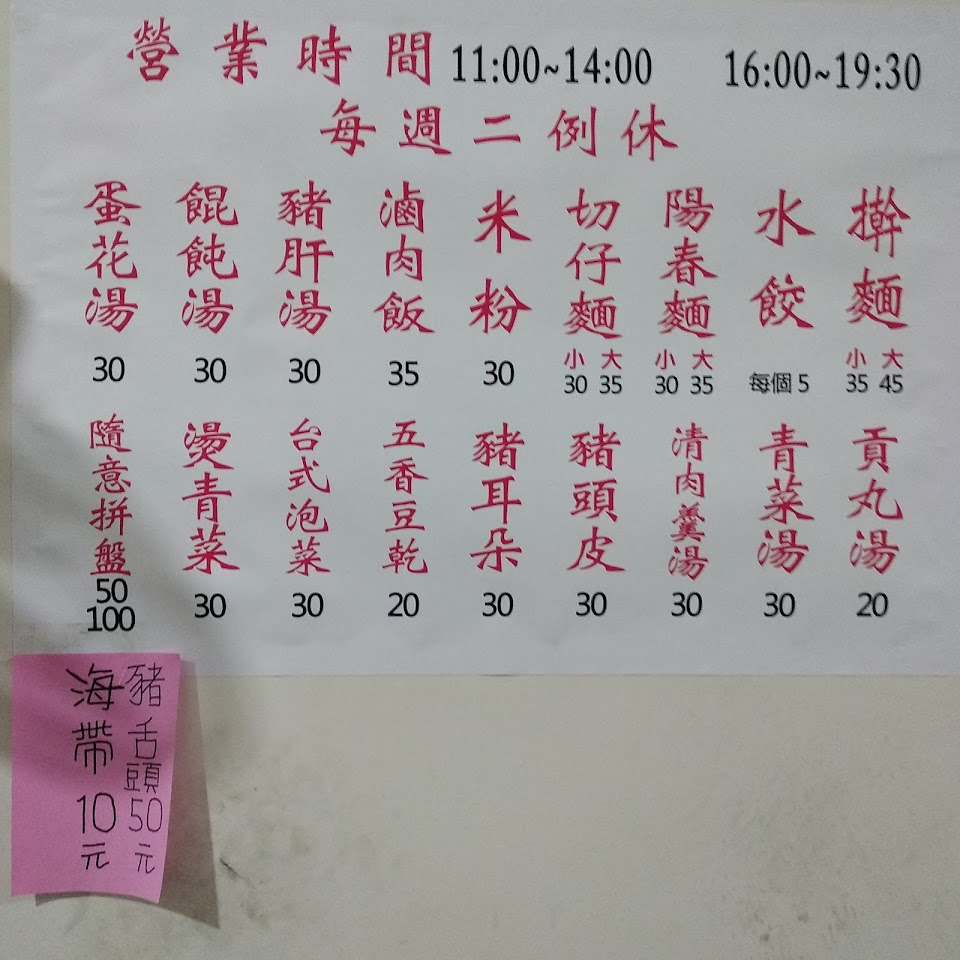 營業時間 11:00~14:00 16:00~19:30
每週二例休
擀麵 小35 大45
水餃 每個5
陽春麵 小30 大35
切仔麵 小30 大35
米粉 30
滷肉飯 35
豬肝湯 30
餛飩湯 30
蛋花湯 30
貢丸湯 20
青菜湯 30
清肉羹湯 30
豬頭皮 30
豬耳朵 30
五香豆乾 20
台式泡菜 30
燙青菜 30
隨意拼盤 50 100
豬舌頭50元
海帶10元